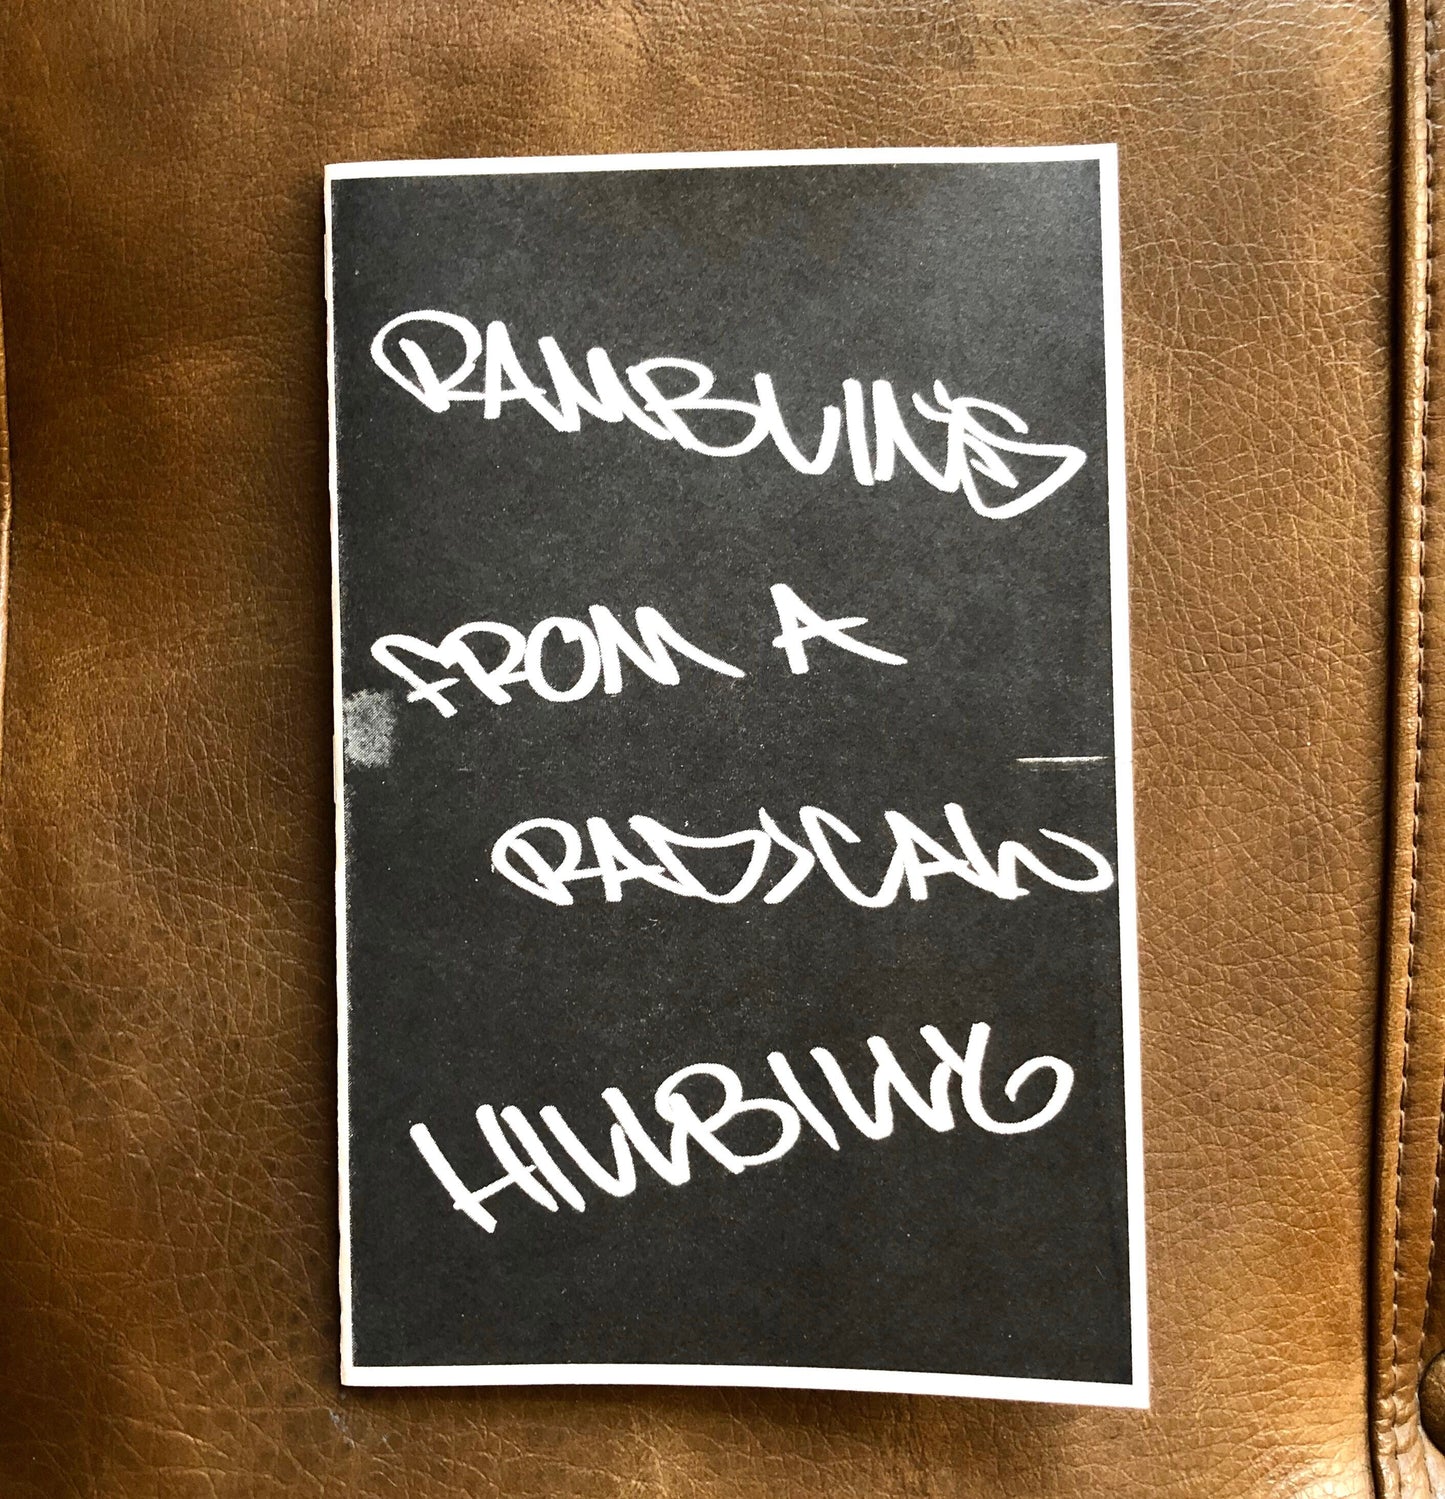 RAMBLIN'S
FROM A
RADICAL
HILLBILLY